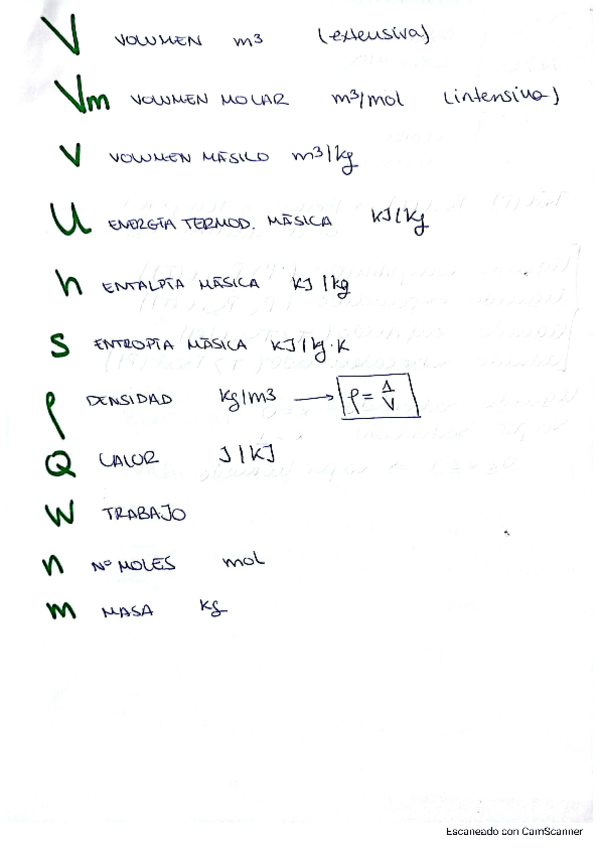 V VOLUMEN m3 (extensiva)
Vm VOLUMEN MOLAR m3/mol (intensiva)
v VOLUMEN MÁSICO m3/kg
u ENERGÍA TERMOD. MÁSICA KJ/Kg
h ENTALPÍA MÁSICA KJ/kg
s ENTROPÍA MÁSICA KJ/kg·K
ρ DENSIDAD Kg/m3 → ρ = 1/V
Q CALOR J/KJ
W TRABAJO
n Nº MOLES mol
m MASA kg
Escaneado con CamScanner